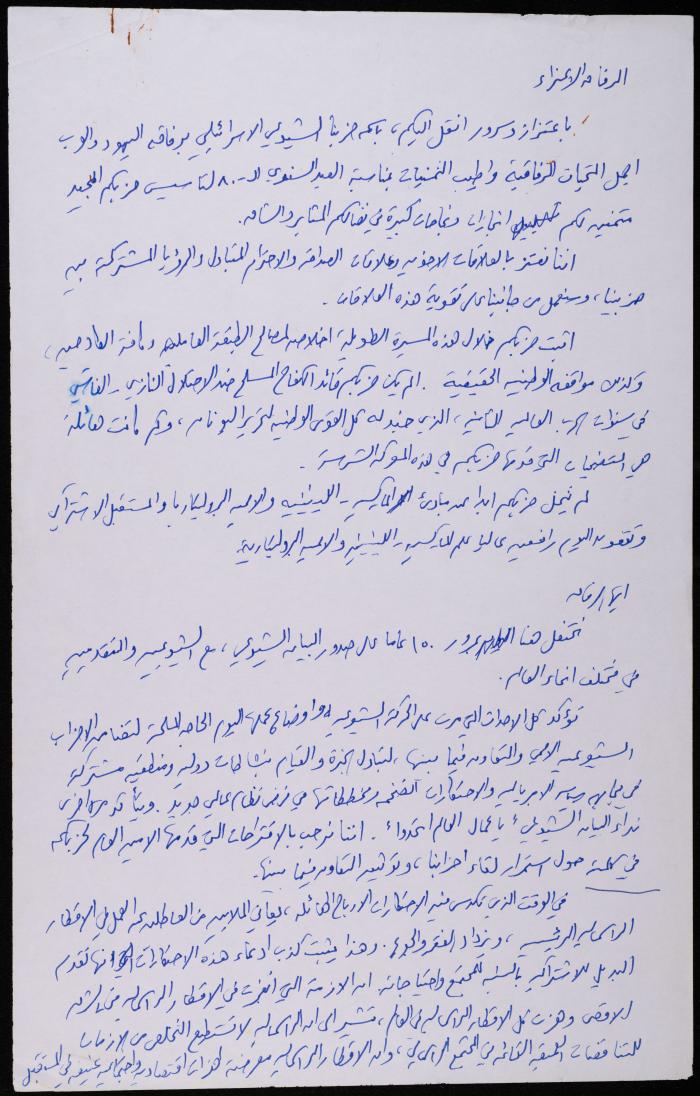 الرفاق الاعزاء
باعتزاز وسرور انقل اليكم، باسم حزبنا الشيوعي الاسرائيلي برفاقه اليهود والعرب
اجمل التحيات الرفاقية واطيب التمنيات بمناسبة العيد السنوي الـ-٨٠ لتأسيس حزبكم المجيد
متمنين لكم انجازات ونجاحات كبيرة في نضالكم المثابر والشاق.
اننا نعتز بالعلاقات الاخوية وعلاقات الصداقة والاحترام المتبادل والرؤيا المشتركة بين
حزبينا، وسنعمل من جانبنا على تقوية هذه العلاقات.
اثبت حزبكم خلال هذه المسيرة الطويلة اخلاصه لمصالح الطبقة العاملة وكافة الكادحين،
وكذلك مواقفه الوطنية الحقيقية. ألم يكن حزبكم قائد الكفاح المسلح ضد الاحتلال النازي - الفاشي
في سنوات الحرب العالمية الثانية، الذي جند له كل القوى الوطنية لتحرير اليونان، وكم كانت هائلة
هي التضحيات التي قدمها حزبكم في هذه المعركة الشرسة.
لم يتخل حزبكم ابدا عن مبادئ الماركسية - اللينينية والاممية البروليتارية والمستقبل الاشتراكي
وتقفون اليوم رافعين عاليا علم الماركسية - اللينينية والاممية البروليتارية.
ايها الرفاق
نحتفل هنا بمرور ١٥٠ عاما على صدور البيان الشيوعي، مع الشيوعيين والتقدميين
في مختلف انحاء العالم.
تؤكد كل الاحداث التي مرت على الحركة الشيوعية واوضاع عملها اليوم الحاجة الملحة لتضامن الاحزاب
الشيوعية الاممي والتعاون فيما بينها، لتبادل الخبرة والقيام بنشاطات دولية ومنطقية مشتركة
في مجابهة سياسة الامبريالية والاحتكارات الضخمة ومخططاتها في فرض نظام عالمي جديد.
نداء البيان الشيوعي "يا عمال العالم اتحدوا". اننا نرحب بالاقتراحات التي قدمها الامين العام لحزبكم
في كلمته حول استمرار لقاء احزابنا، وتوثيق التعاون فيما بينها.
في الوقت الذي تكدس فيه الاحتكارات الارباح الهائلة، يعاني الملايين من العاطلين عن العمل في الاقطار
الرأسمالية الرئيسية، ويزداد الفقر والجوع. وهذا يثبت كذب ادعاء هذه الاحتكارات انها تقدم
البديل للاشتراكية بالنسبة للمجتمع واحتياجاته. ان الازمة التي انفجرت في الاقطار الرأسمالية في الشرق
الاقصى وهزت كل الاقطار الرأسمالية في العالم، تشير الى ان الرأسمالية لا تستطيع التخلص من الازمات
للتناقضات الطبقية القائمة في المجتمع الرأسمالي، وان الاقطار الرأسمالية معرضة لهزات اقتصادية واجتماعية عنيفة في المستقبل